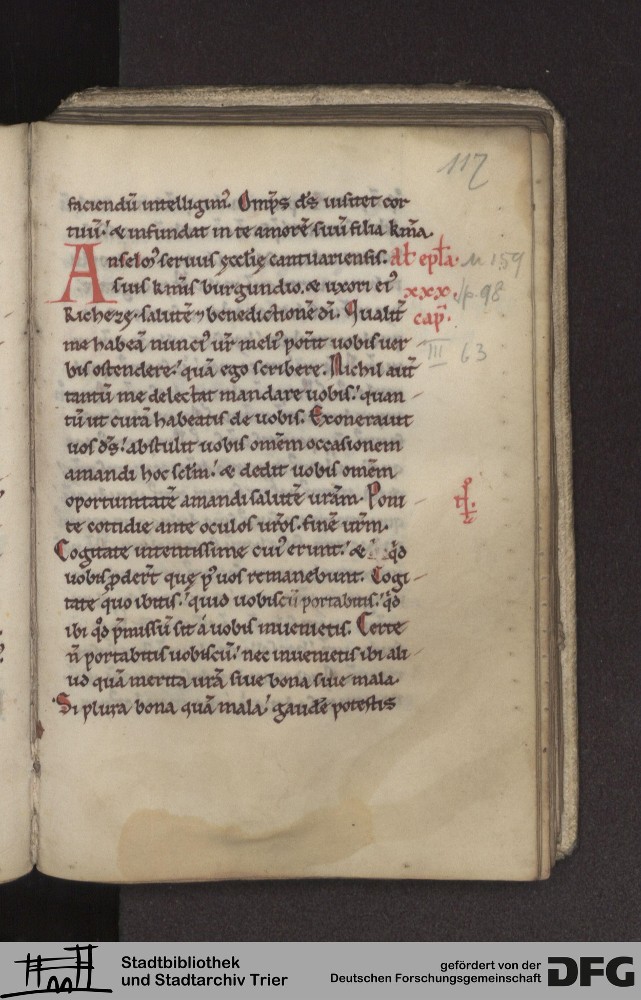 117
faciendū intelligim᷒. Omp̄s d̄s uisitet cor
tuū.' & infundat in te amorē suū filia km̄a.
Anselm᷒ seruus ęccl̄ię cantuariensis. Al̄ ep̄la.
suis km̄is burgundio. & uxori ei᷒ xxx.
Richezę. salutē ⁊ benedictionē dī. Qualit̄ cap̄.
me habeā nunci᷒ ur̄ meli᷒ potit uobis uer
bis ostendere.' quā ego scribere. Nichil aut̄
tantū me delectat mandare uobis.' quan
tū ut curā habeatis de uobis. Exonerauit
uos d̄s.' abstulit uobis om̄em occasionem
amandi hoc scl̄m.' & dedit uobis om̄em
oportunitatē amandi salutē urām. Poni
te cottidie ante oculos ur̄os. finē ur̄m.
Cogitate intentissime cui᷒ erunt.' & q̄d
uobis ꝓder̄t quę p᷒ uos remanebunt. Cogi
tate quo ibitis.' quid uobiscū portabitis.' q̄d
ibi q̄d p̄missū sit á uobis inuenietis. Certe
n̄ portabitis uobiscū.' nec inuenietis ibi ali
ud quā merita urā siue bona siue mala.
Si plura bona quā mala.' gaudē potestis
n 159
p 98
III 63
Stadtbibliothek
und Stadtarchiv Trier
gefördert von der
Deutschen Forschungsgemeinschaft
DFG